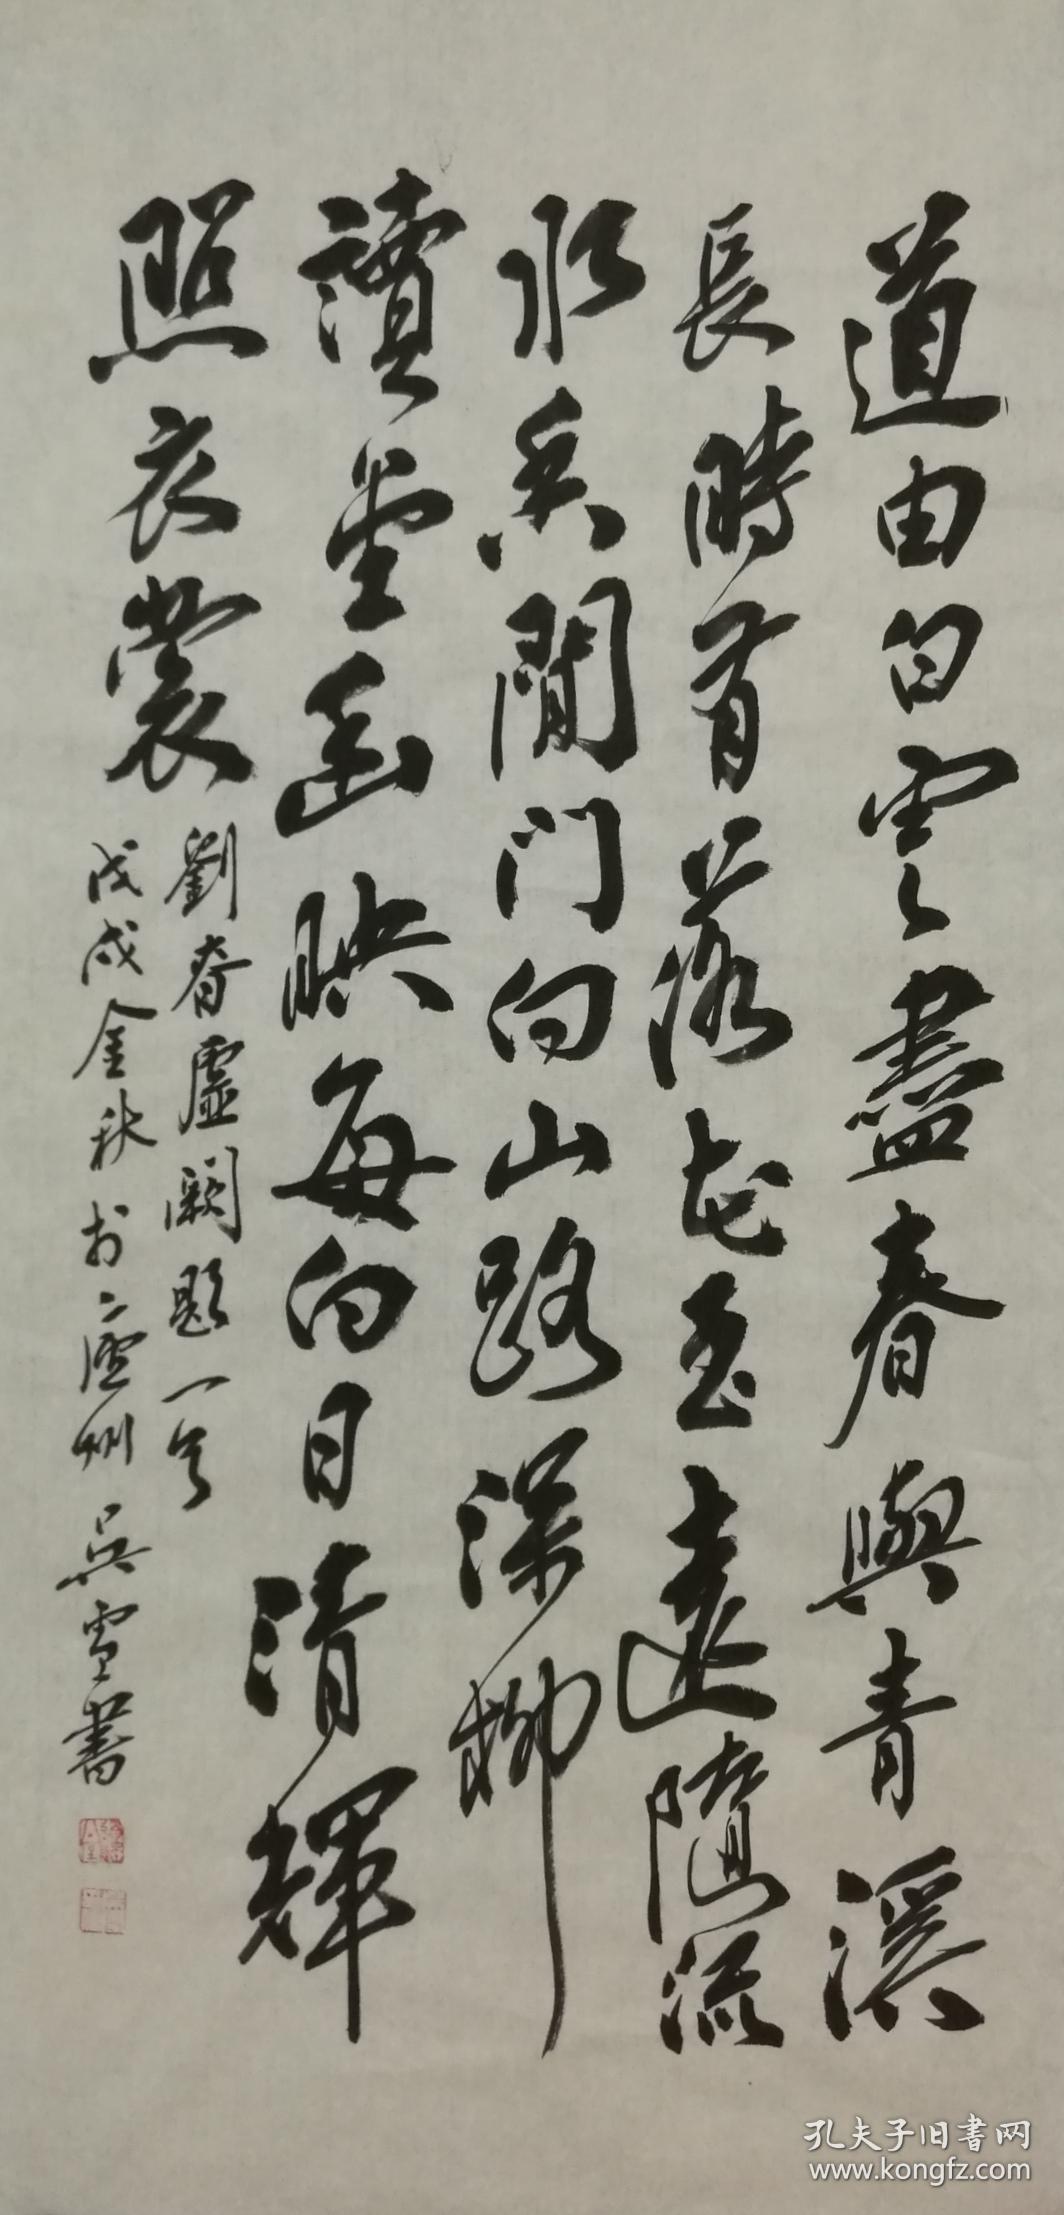 道由白雲盡春與青溪
長時有落花至遠隨流
水香閒門向山路深柳
讀書堂幽映每白日清輝
照衣裳
劉眘虛闕題一首
戊戌金秋於廬州吳雪書
孔夫子旧書网
www.kongfz.com